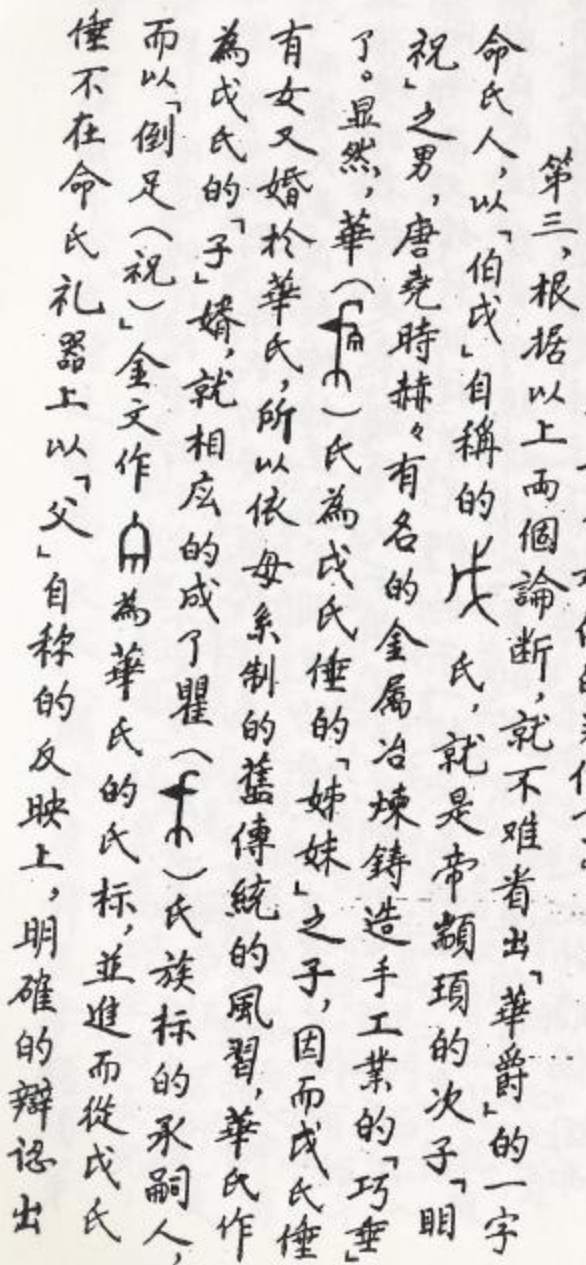 第三，根据以上両個論断，就不难看出「華爵」的一字
命氏人，以「伯戉」自稱的 氏，就是帝顓頊的次子「明
祝」之男，唐堯時赫々有名的金属冶煉鋳造手工業的「巧垂」
了。显然，華（）氏為戉氏倕的「姊妹」之子，因而戉氏倕
有女又婚於華氏，所以依母系制的舊傳統的風習，華氏作
為戉氏的「子」婿，就相应的成了瞿（）氏族标的承嗣人，
而以「倒足（祝）」金文作 為華氏的氏标，並進而從戉氏
倕不在命氏礼器上以「父」自称的反映上，明確的辯認出